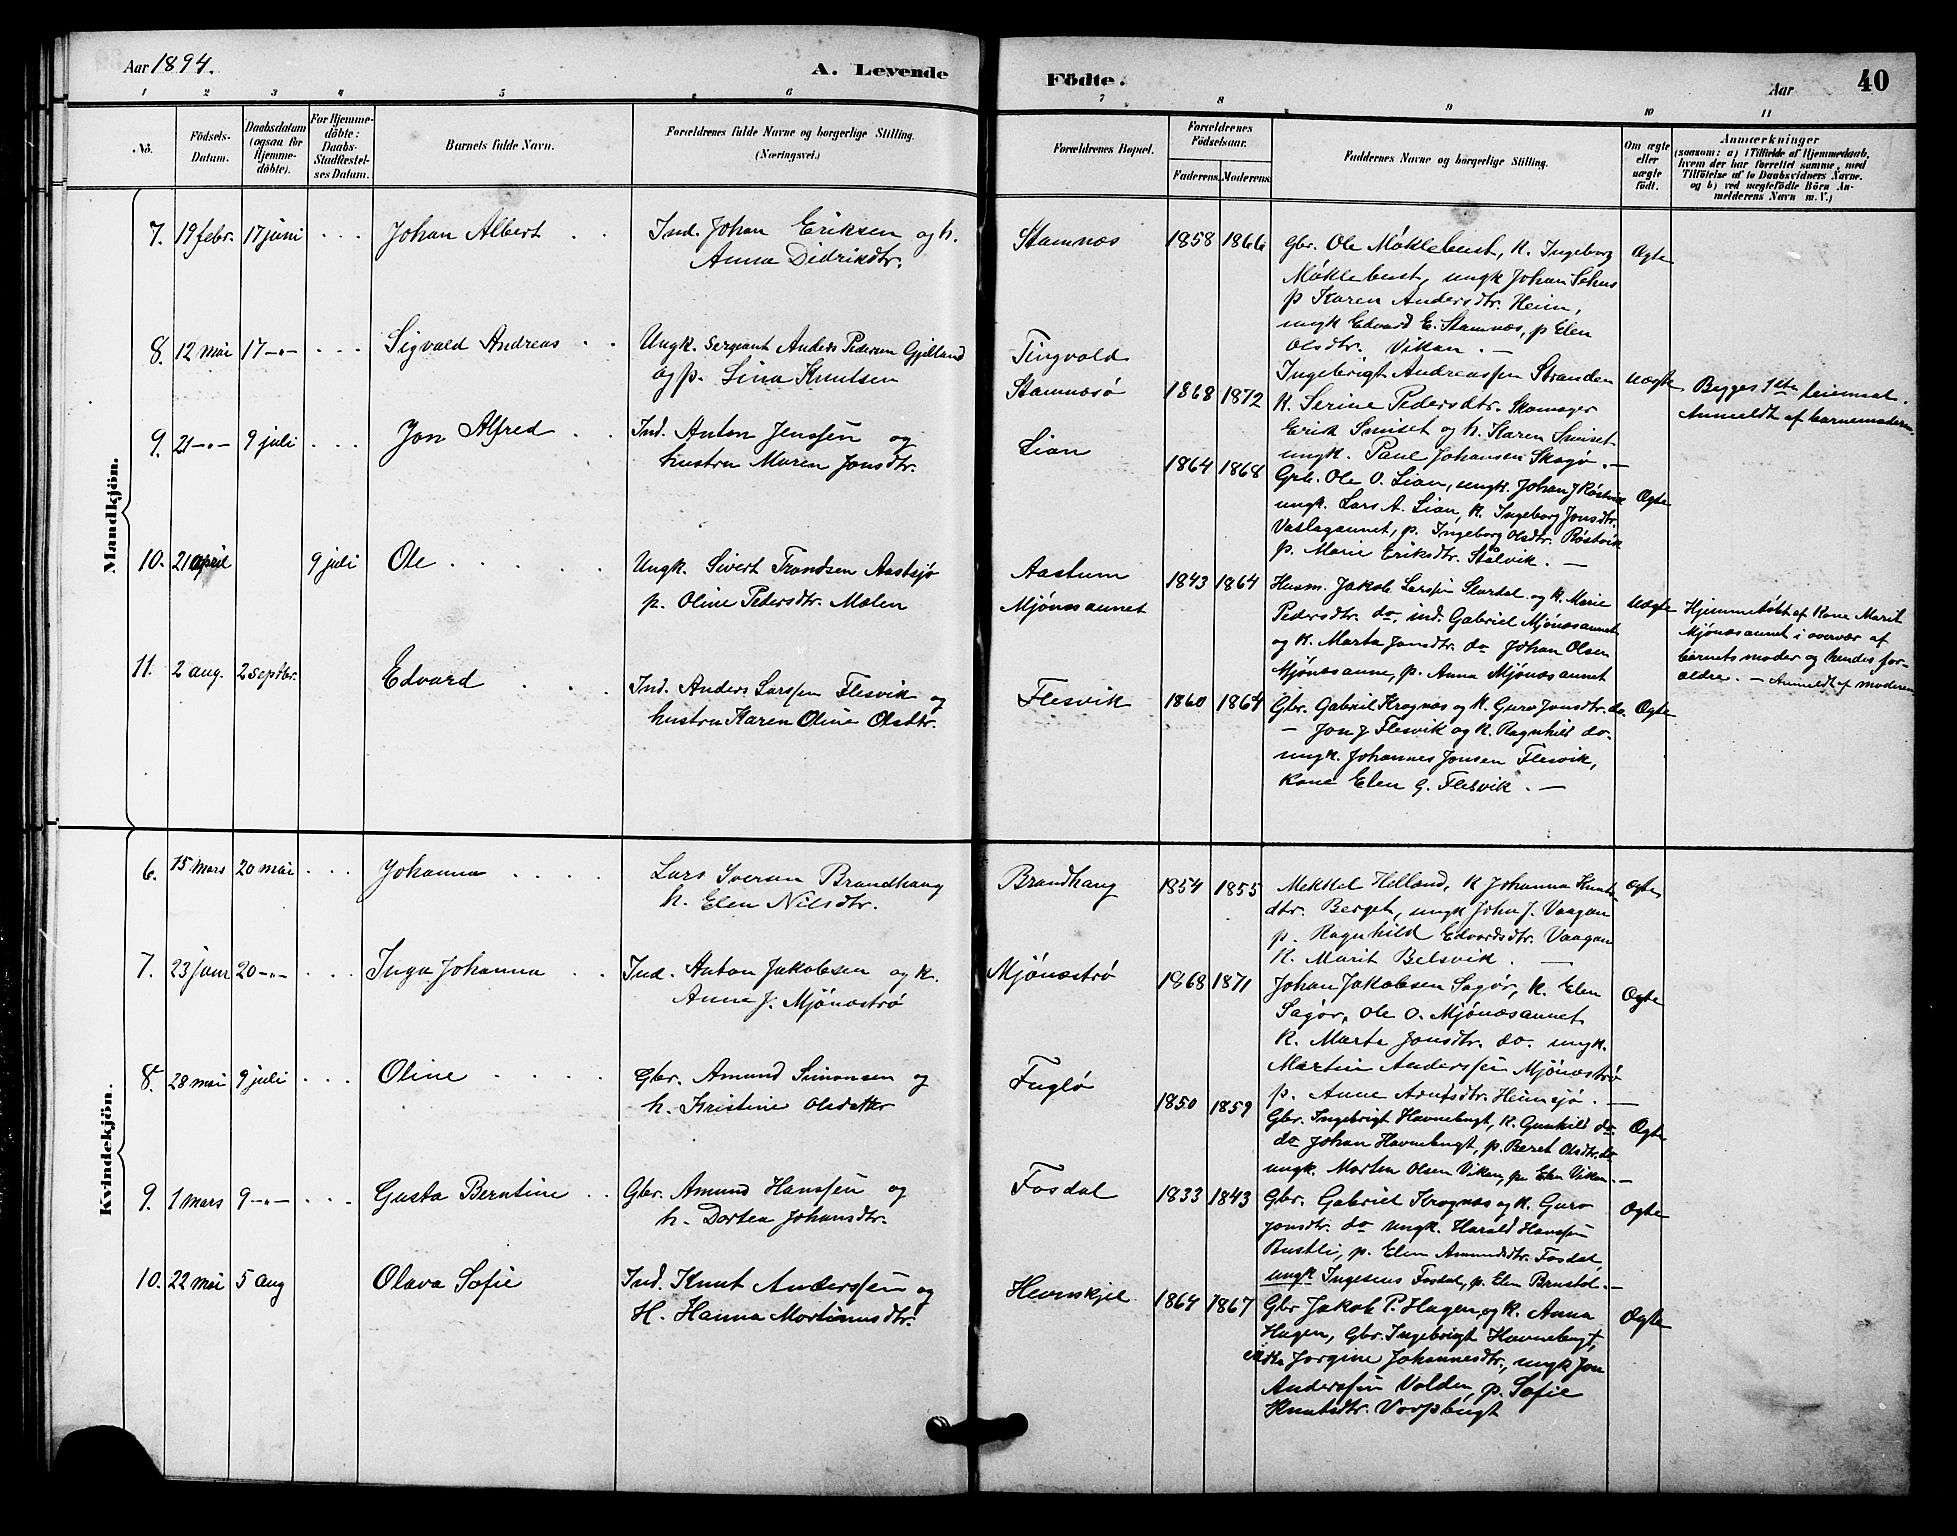 Aar 1894.
A. Levende
Födte.
Aar
40
1 2 3 4 5 6 7 8 9 10 11
No.
Födsels-
Datum.
Daabsdatum
(ogsaa for
Hjemme-
döbte).
For Hjemme-
döbte:
Daabs-
Stadfæstel-
ses Datum.
Barnets fulde Navn.
Forældrenes fulde Navne og borgerlige Stilling.
(Næringsvei.)
Forældrenes Bopæl.
Forældrenes
Födselsaar.
Faderens. Moderens.
Faddernes Navne og borgerlige Stilling.
Om ægte
eller
uægte
födt.
Anmærkninger
(saasom: a) i Tilfælde af Hjemmedaab,
hvem der har forrettet samme, med
Tilföielse af to Daabsvidners Navne.
og b) ved uægtefödte Börn An-
melderens Navn m. V.)
Mandkjön.
7. 19 febr. 17 juni Johan Albert
Ind. Johan Eriksen og h.
Anna Didrikdtr.
Stamnæs 1858 1866
Gbr. Ole Møklebust, K. Ingeborg
Møklebust, ungk Johan Sehus
p Karen Andersdtr. Heim,
ungk Edvard E. Stamnæs, p Elen
Olsdtr. Vikan. —
Ægte
8. 12 mai 17 -"- Sigvald Andreas
Ungk. Sergeant Anders Pedersen Gjelland
og p. Lina Knutsen
Tingvold
Stamnæsø 1868 1872
Ingebrigt Andreassen Stranden
K. Serine Pedersdtr. Skomager
Erik Smiset og h. Karen Smiset
ungk. Paul Johansen Skagø. —
Uægte
Begges 1ste leiermaal.
Anmeldt af barnemoderen.
9. 21 -"- 9 juli Jon Alfred
Ind. Anton Jenssen og
hustru Maren Jonsdtr.
Lian 1864 1868
Grb. Ole O. Lian, ungk. Johan J Røstvik
ungk. Lars A. Lian, K. Ingeborg Jonsdtr.
Vaslagaunet, p. Ingeborg Olsdtr. Røstvik
p. Marie Eriksdtr. Stølvik. —
Ægte
10. 21 april 9 juli Ole
Ungk. Sivert Trondsen Aastsjø
p. Oline Pedersdtr. Mælen
Aastum
Mjønæsaunet 1843 1864
Husm. Jakob Larssen Slørdal og K. Marie
Pedersdtr. do, ind. Gabriel Mjønæsaunet
og K. Marta Jonsdtr. do Johan Olsen
Mjønæsaune, p. Anna Mjønæsaunet
Uægte
Hjemmedøbt af Kone Marit
Mjønæsaunet i overvær af
barnets moder og hendes for-
ældre. — Anmeldt af moderen
11. 2 aug. 2 septbr. Edvard
Ind. Anders Larssen Flesvik og
hustru Karen Oline Olsdtr.
Flesvik 1860 1864
Gbr. Gabriel Krognæs og K. Guro Jonsdtr. do.
— Jon J. Flesvik og K. Ragnhild do.
ungk. Johannes Jonsen Flesvik,
Kone Elen G. Flesvik. —
Ægte
Kvindekjön.
6. 15 mars 20 mai Johanna
Lars Iversen Brandhaug
h. Elen Nilsdtr.
Brandhaug 1854 1855
Mekkel Helland, K Johanna Knuts-
dtr. Berget, ungk John J. Vaagan
p. Ragnhild Edvardsdtr. Vaagan
K. Marit Belsvik. —
Ægte
7. 23 jan 20 -"- Inga Johanna
Ind. Anton Jakobsen og K.
Anne J. Mjønæstrø
Mjønæstrø 1868 1871
Johan Jakobsen Sagør, K. Elen
Sagør, Ole O. Mjønæsaunet
K. Marta Jonsdtr. do. ungk.
Martin Anderssen Mjønæstrø
p. Anne Arntsdtr. Heimsjø. —
Ægte
8. 28 mai 9 juli Oline
Gbr. Amund Simonsen og
h. Kristine Olsdatter
Fuglø 1850 1859
Gbr. Ingebrigt Havnebugt, K. Gunhild do
do Johan Havnebugt, p. Beret Olsdtr. do
ungk. Morten Olsen Vikan, p. Elen Vikan. —
Ægte
9. 1 mars 9 -"- Gusta Berntine
Gbr. Amund Hanssen og
h. Dortea Johansdtr.
Fosdal 1833 1843
Gbr. Gabriel Krognæs og K. Guro
Jonsdtr. do ungk. Harald Hanssen
Bustli, p. Elen Amundsdtr. Fosdal,
ungk Ingesius Fosdal, p. Elen
Ægte
10. 22 mai 5 aug Olava Sofie
Ind. Knut Anderssen og
H. Hanna Mortinusdtr.
Hevnskjel 1864 1867
Gbr Jakob P. Hagen og K. Anna
Hagen, Gbr. Ingebrigt Havnebugt,
Jorgine Johannesdtr., ungk Jon
Anderssen Volden, p. Sofie
Knutsdtr. Vorpbugt
Ægte